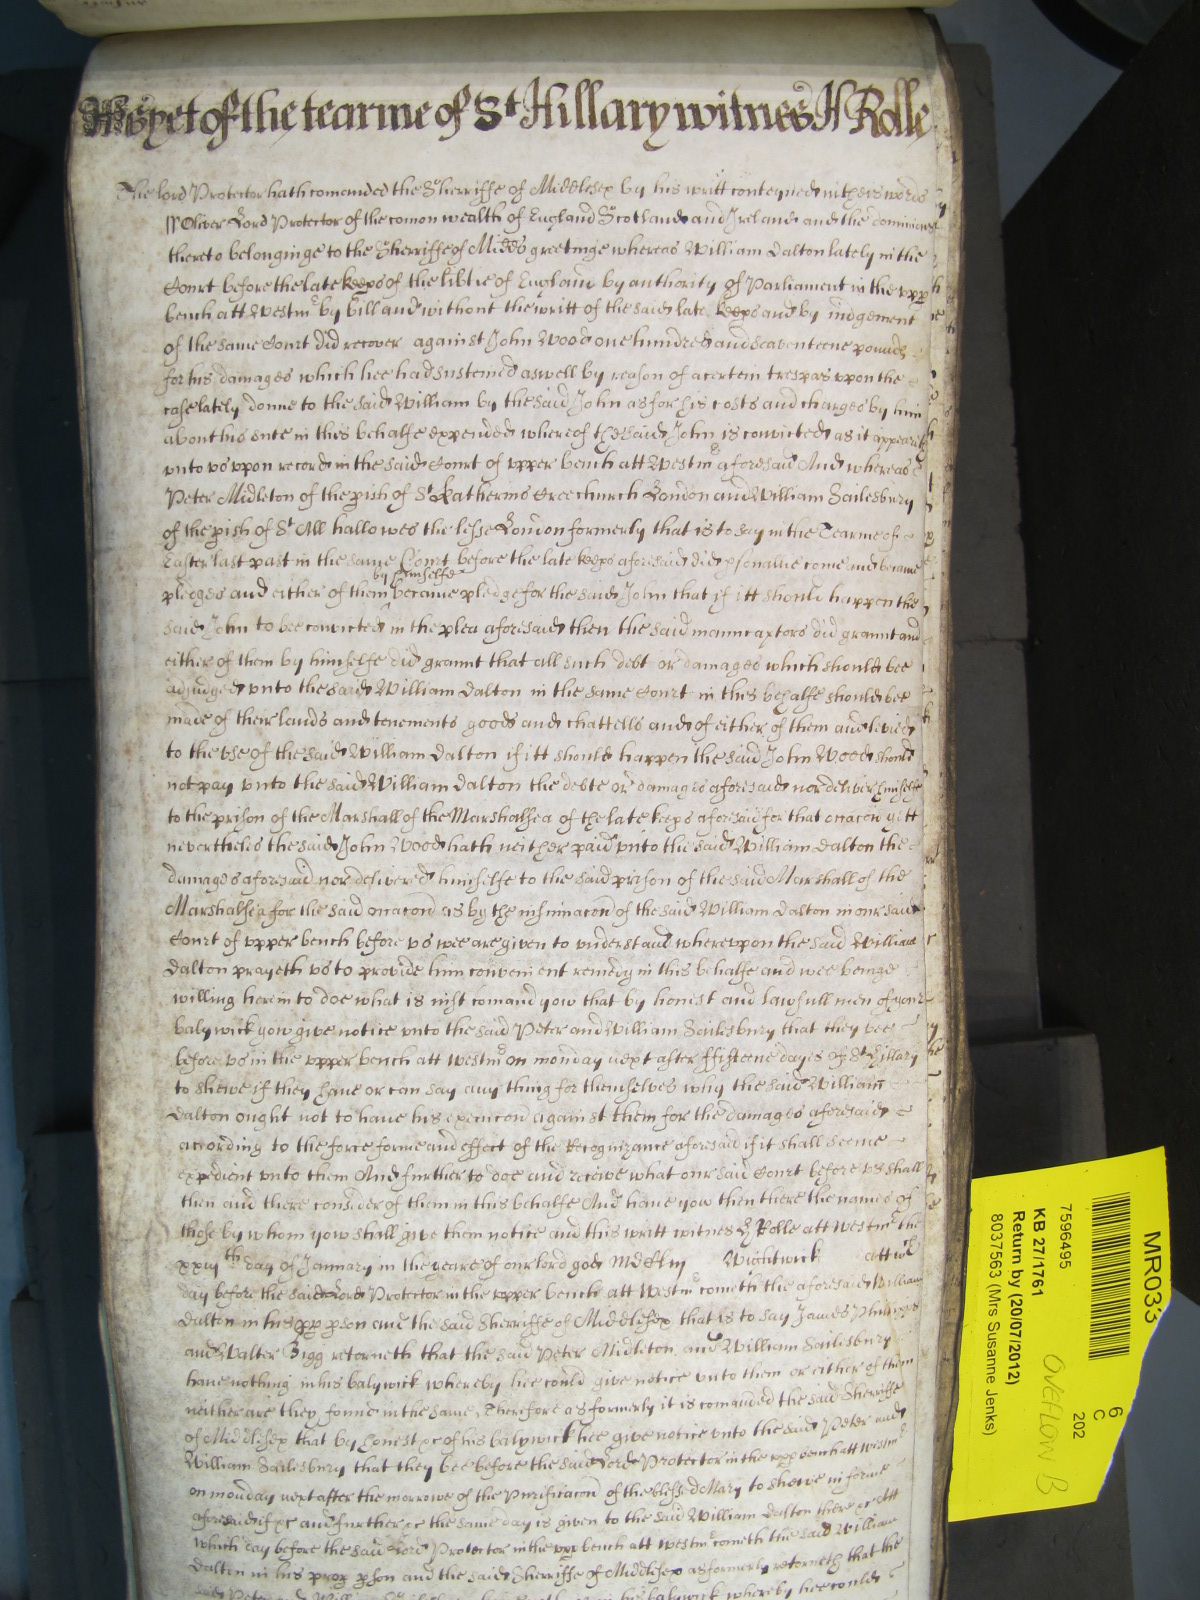 As yet of the tearme of St Hillary witnes H Rolle
The lord Protector hath comanded the Sherriffe of Middlesex by his writt conteyned in theis words
ss Oliver Lord Protector of the comon wealth of England Scotland and Ireland and the dominions
thereto belonginge to the Sherriffe of Midds greetinge whereas William Dalton lately in the
Court before the late keeps of the libtie of England by authority of Parliament in the upp
bench att Westmr by bill and without the writt of the said late keeps and by iudgement
of the same Court did recover against John Wood one hundred and seaventeene pounds
for his damages which hee had susteined aswell by reason of a certein trespas upon the
case lately donne to the said William by the said John as for his costs and charges by him
about his suite in this behalfe expended whereof the said John is convicted as it appeareth
unto us uppon record in the said Court of upper bench att Westmr aforesaid And whereas
Peter Midleton of the pish of St Katherins Creechurch London and William Sailesbury
of the pish of St All hallowes the lesse London formerly that is to say in the Tearme of
Easter last past in the same Court before the late keeps aforesaid did psonallie come and became
by himselfe
pledges and either of them became pledge for the said John that if itt should happen the
said John to bee convicted in the plea aforesaid then the said mainucaptors did graunt and
either of them by himselfe did graunt that all such debt or damages which should bee
adjudged unto the said William Dalton in the same Court in this behalfe should bee
made of their lands and tenements goods and chattells and of either of them and levied
to the use of the said William Dalton if itt should happen the said John Wood should
not pay unto the said William Dalton the debte or damages aforesaid nor deliver himselfe
to the prison of the Marshall of the Marshalsea of the late keeps aforesaid for that occacon yett
neverthelis the said John Wood hath neither paid unto the said William Dalton the
damages aforesaid nor delivered himselfe to the said prison of the said Marshall of the
Marshalsea for the said occacond as by the insinuacon of the said William Dalton in our said
Court of upper bench before us wee are given to understand whereupon the said William
Dalton prayeth us to provide him convenient remedy in this behalfe and wee beinge
willing herein to doe what is iust comand yow that by honest and lawfull men of your
balywick yow give notice unto the said Peter and William Sailesbury that they bee
before us in the upper bench att Westmr on monday next after ffifteene dayes of St Hillary
to shewe if they have or can say any thing for themselves why the said William
Dalton ought not to have his execucon against them for the damages aforesaid
according to the force forme and effect of the Recognizance aforesaid if it shall seeme
expedient unto them And further to doe and receive what our said Court before us shall
then and there consider of them in this behalfe And have yow then there the names of
those by whom yow shall give them notice and this writt witnes H Rolle att Westmr the
xxiijth day of January in the yeare of our lord god MDCliij Wightwick att wch
day before the said Lord Protector in the upper bench att Westmr cometh the aforesaid William
Dalton in his pp pson and the said Sherriffe of Middlesex that is to say James Phillipps
and Walter Bigg retorneth that the said Peter Midleton and William Sailesbury
have nothing in his balywick whereby hee could give notice unto them or either of them
neither are they found in the same Therefore as formerly it is comanded the said Sherriffe
of Middlesex that by honest &c of his balywick hee give notice unto the said Peter and
William Sailesbury that they bee before the said Lord Protector in the upp bench att Westmr
on monday next after the morrowe of the Purificacon of the blessed Mary to shewe in forme
aforesaid if &c and further &c the same day is given to the said William Dalton there &c Att
which day before the said Lord Protector in the upp bench att Westmr cometh the said William
Dalton in his prop pson and the said Sherriffe of Middlesex as formerly retorneth that the
said Peter and William have nothing in his balywick whereby hee could
MR033
7596495
KB 27/1761
Return by (20/07/2012)
8037563 (Mrs Susanne Jenks)
6
C
202
OVERFLOW B